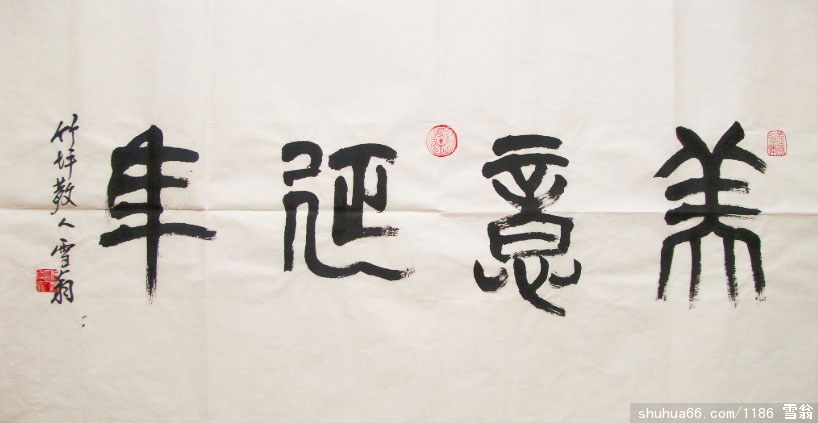 美意延年
竹坪散人雪翁
shuhua66.com/1186 雪翁